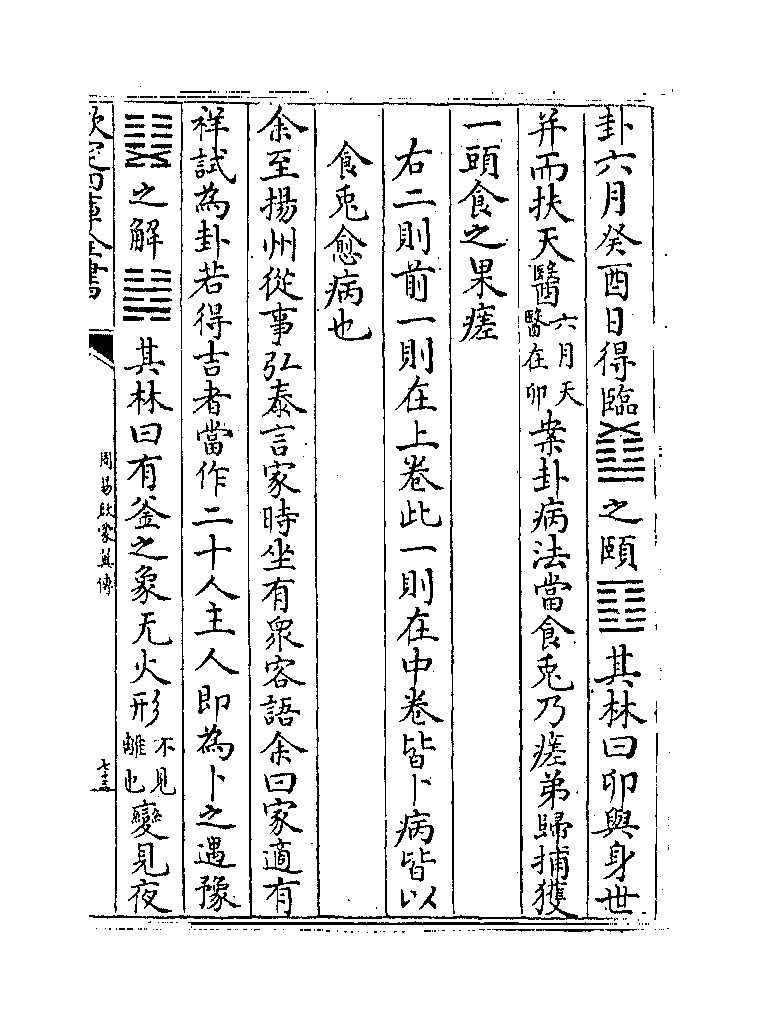 卦六月癸酉日得臨䷒之頤䷚其林曰卯與身世
并而扶天醫六月天醫在卯案卦病法當食兎乃瘥弟歸捕獲
一頭食之果瘥
右二則前一則在上卷此一則在中卷皆卜病皆以
食兎愈病也
余至揚州從事弘泰言家時坐有衆客語余曰家適有
祥試為卦若得吉者當作二十人主人即為卜之遇豫
䷏之解䷧其林曰有釜之象无火形不見離也變見夜
欽定四庫全書
周易啟蒙翼傳
七十三